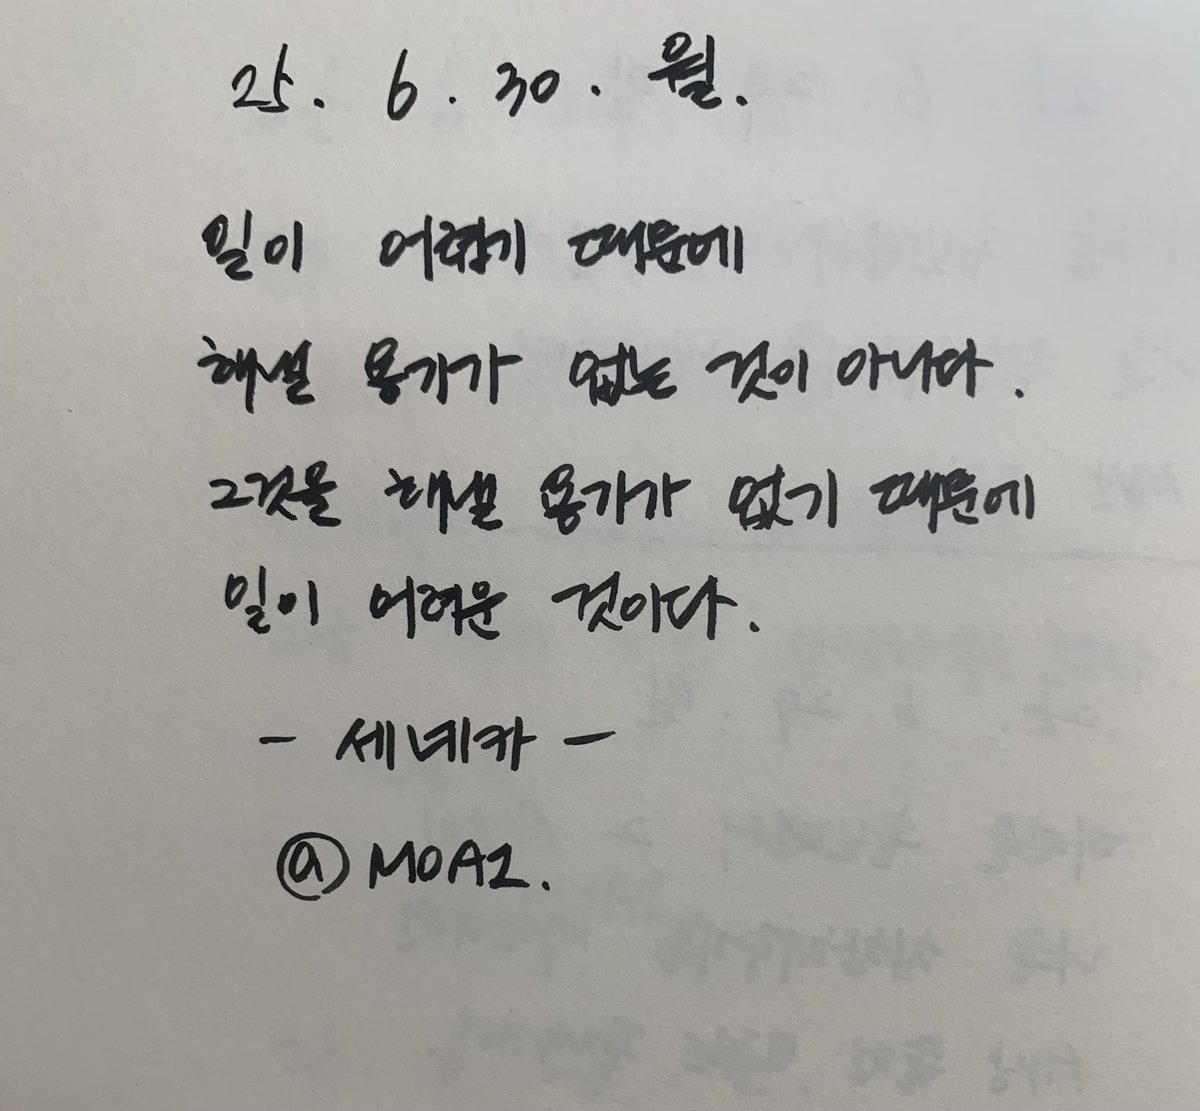 25. 6. 30. 월.
일이 어렵기 때문에
해낼 용기가 없는 것이 아니다.
그것을 해낼 용기가 없기 때문에
일이 어려운 것이다.
- 세네카 -
@ MOAI.